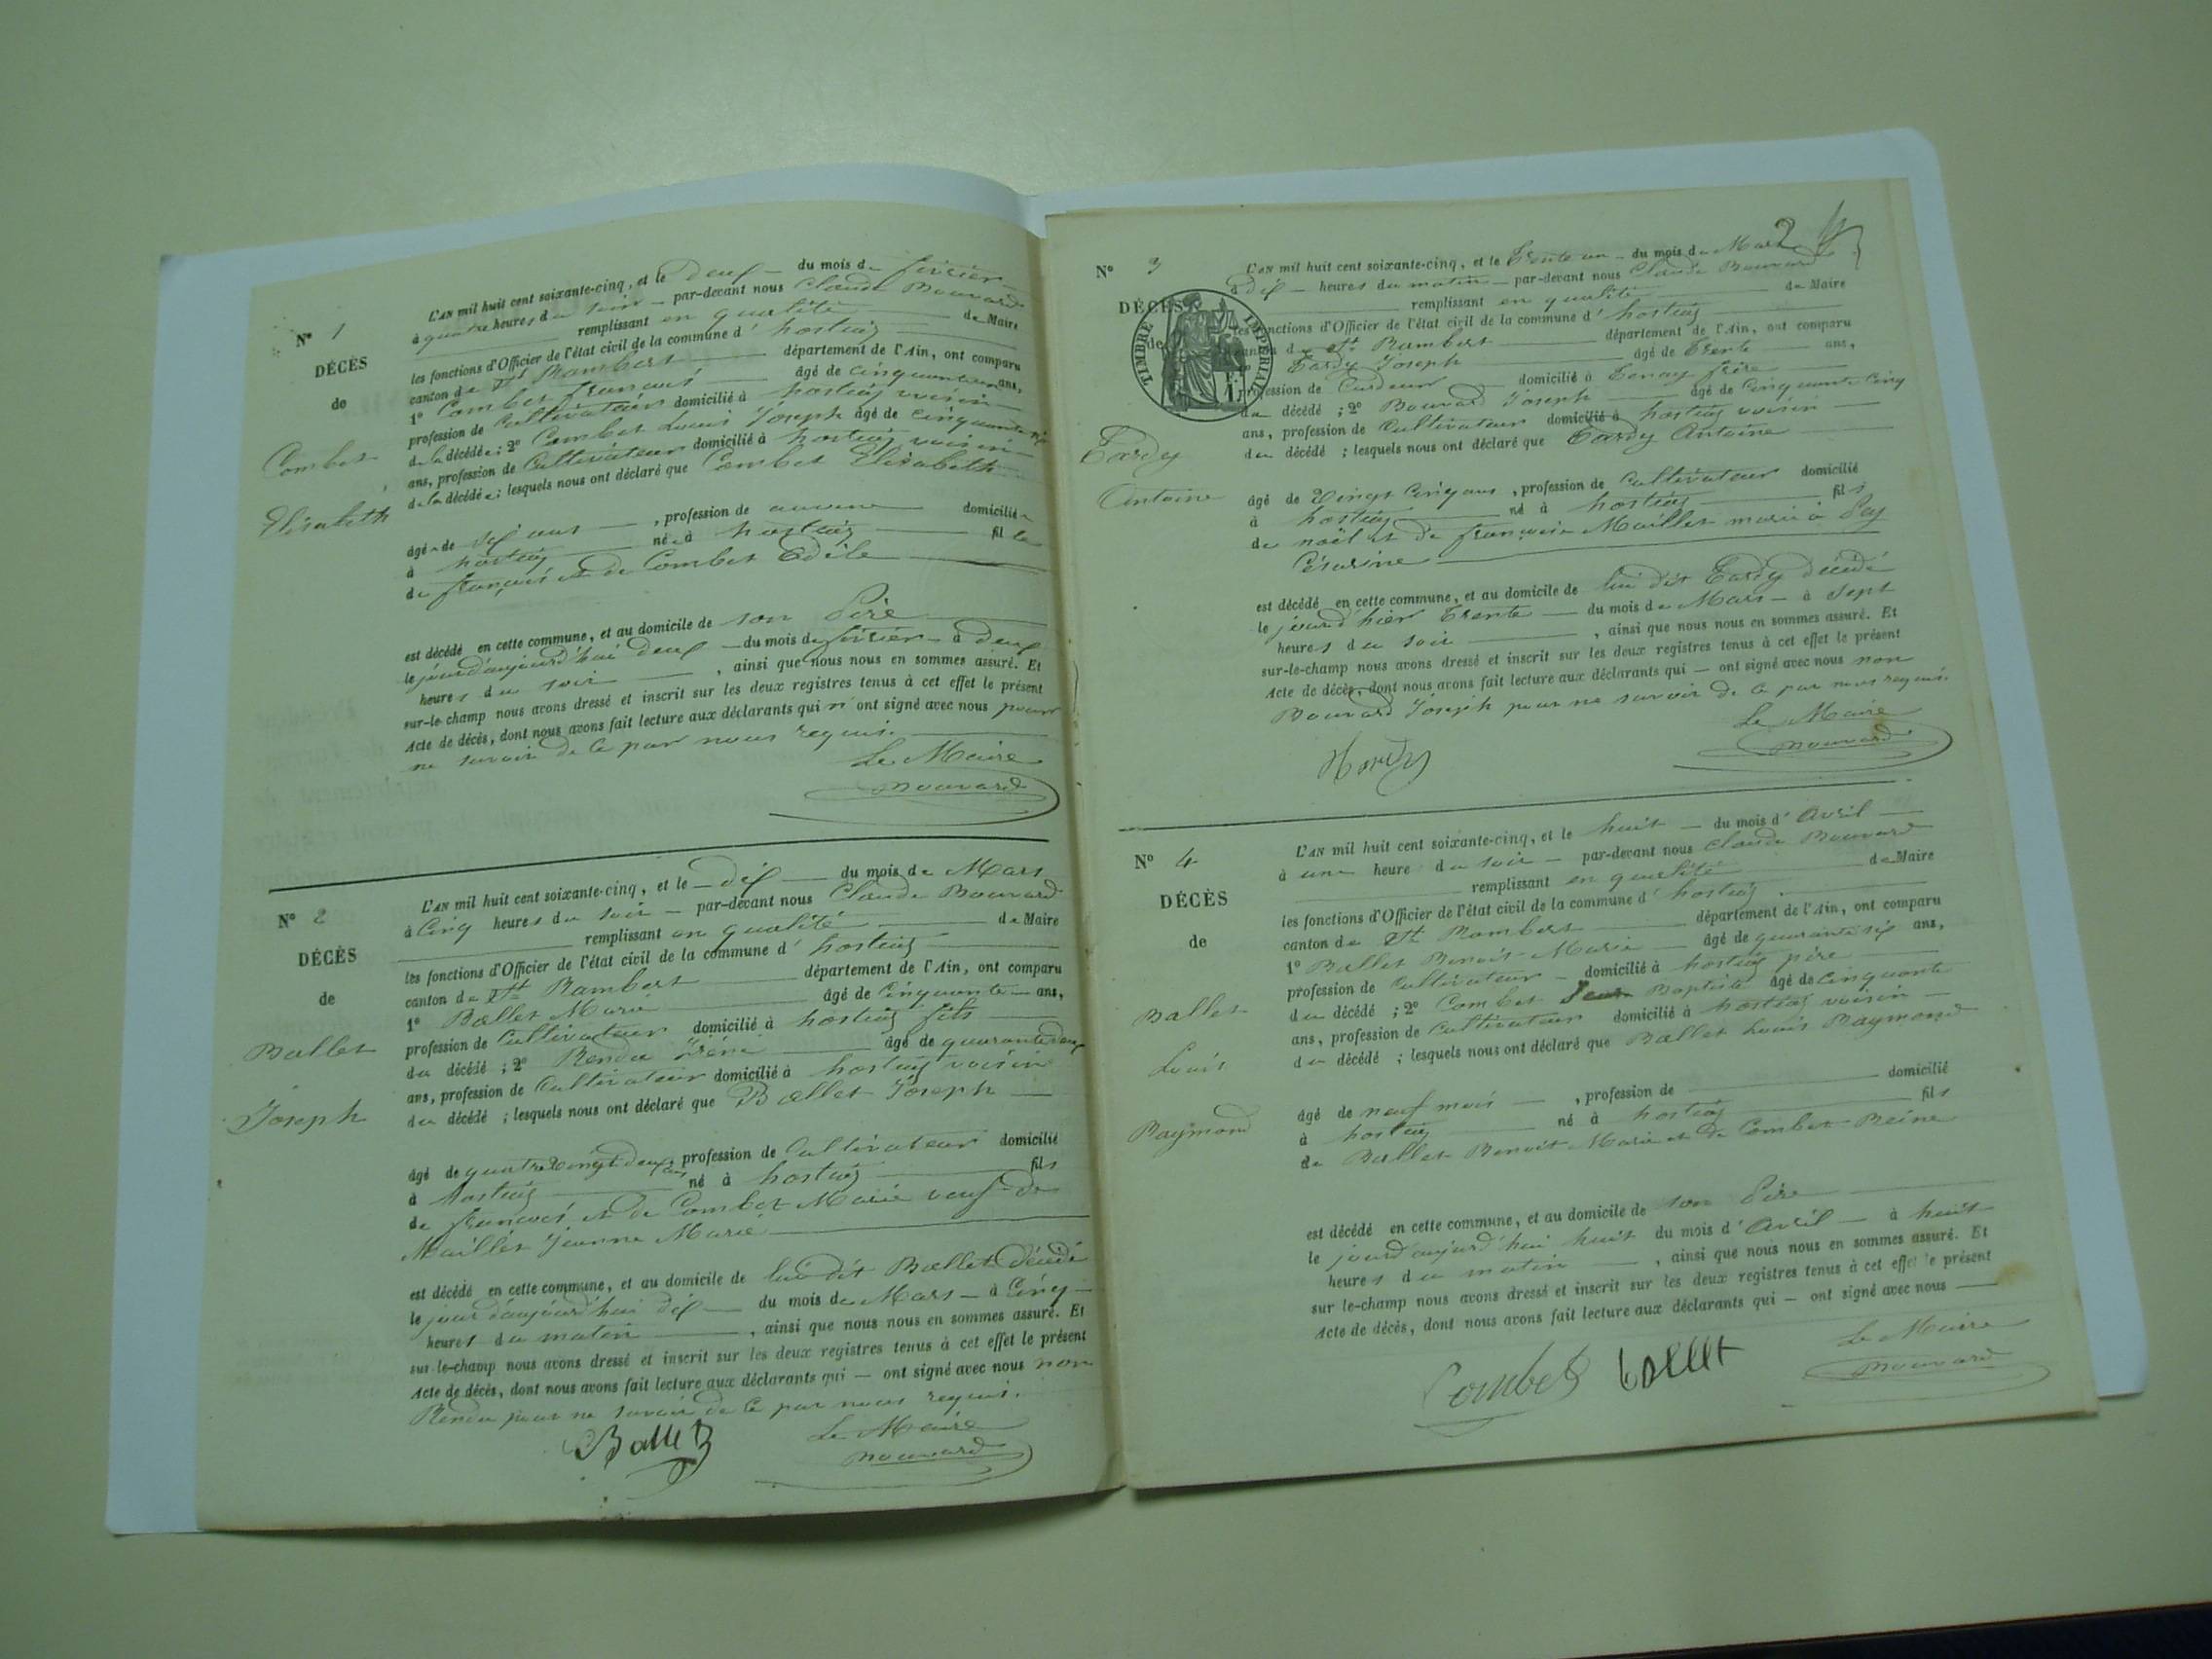 N° 1
DÉCÈS
de
Combet
Elisabeth
L'AN mil huit cent soixante-cinq, et le deux du mois de fevrier
à quatre heures du soir par-devant nous Claude Bouvard
remplissant en qualité de Maire
les fonctions d'Officier de l'état civil de la commune d' hostiaz
canton de St Rambert département de l'Ain, ont comparu
1° Combet françois âgé de cinquante ans,
profession de Cultivateur domicilié à hostiaz voisin
de la décédée; 2° Combet Louis Joseph âgé de cinquante
ans, profession de Cultivateur domicilié à hostiaz voisin
de la décédée; lesquels nous ont déclaré que Combet Elisabeth
âgée de ans, profession de aucune domiciliée
à hostiaz née à hostiaz fille
de françois et de Combet
est décédé en cette commune, et au domicile de son Père
le jourd'aujourd'hui deux du mois de fevrier à deux
heures du soir, ainsi que nous nous en sommes assuré. Et
sur-le-champ nous avons dressé et inscrit sur les deux registres tenus à cet effet le présent
Acte de décès, dont nous avons fait lecture aux déclarants qui n'ont signé avec nous pour
ne savoir de ce par nous requis.
Le Maire
Bouvard
N° 2
DÉCÈS
de
Ballet
Joseph
L'AN mil huit cent soixante-cinq, et le dix du mois de Mars
à Cinq heures du soir par-devant nous Claude Bouvard
remplissant en qualité de Maire
les fonctions d'Officier de l'état civil de la commune d' hostiaz
canton de St Rambert département de l'Ain, ont comparu
1° Ballet Marie âgé de Cinquante ans,
profession de Cultivateur domicilié à hostiaz fils
du décédé; 2° Rendu âgé de quarante deux
ans, profession de Cultivateur domicilié à hostiaz voisin
du décédé; lesquels nous ont déclaré que Ballet Joseph
âgé de quatre vingt deux ans profession de Cultivateur domicilié
à hostiaz né à hostiaz fils
de françois et de Combet Marie veuf de
Maillet Jeanne Marie
est décédé en cette commune, et au domicile de lui dit Ballet décédé
le jour d'aujourd'hui dix du mois de Mars à Cinq
heures du matin, ainsi que nous nous en sommes assuré. Et
sur-le-champ nous avons dressé et inscrit sur les deux registres tenus à cet effet le présent
Acte de décès, dont nous avons fait lecture aux déclarants qui ont signé avec nous non
Rendu pour ne savoir de ce par nous requis.
Ballet
Le Maire
Bouvard
2
N° 3
DÉCÈS
de
TIMBRE IMPÉRIAL
Tardy
Antoine
L'AN mil huit cent soixante-cinq, et le trente un du mois de Mars
à dix heures du matin par-devant nous Claude Bouvard
remplissant en qualité de Maire
les fonctions d'Officier de l'état civil de la commune d' hostiaz
canton de St Rambert département de l'Ain, ont comparu
Tardy Joseph âgé de trente ans,
profession de Cardeur domicilié à Tenay frère
du décédé; 2° Bouvard Joseph âgé de Cinquante Cinq
ans, profession de Cultivateur domicilié à hostiaz voisin
du décédé; lesquels nous ont déclaré que Tardy Antoine
âgé de Vingt Cinq ans, profession de Cultivateur domicilié
à hostiaz né à hostiaz fils
de noël et de françoise Maillet marié à
Césarine
est décédé en cette commune, et au domicile de lui dit Tardy décédé
le jourd'hier trente du mois de Mars à Sept
heures du soir, ainsi que nous nous en sommes assuré. Et
sur-le-champ nous avons dressé et inscrit sur les deux registres tenus à cet effet le présent
Acte de décès, dont nous avons fait lecture aux déclarants qui ont signé avec nous non
Bouvard Joseph pour ne savoir de ce par nous requis.
Le Maire
Bouvard
N° 4
DÉCÈS
de
Ballet
Louis
Raymond
L'AN mil huit cent soixante-cinq, et le huit du mois d'Avril
à une heure du soir par-devant nous Claude Bouvard
remplissant en qualité de Maire
les fonctions d'Officier de l'état civil de la commune d' hostiaz
canton de St Rambert département de l'Ain, ont comparu
1° Ballet Benoit Marie âgé de quarante six ans,
profession de Cultivateur domicilié à hostiaz père
du décédé; 2° Combet Jean Baptiste âgé de cinquante
ans, profession de Cultivateur domicilié à hostiaz voisin
du décédé; lesquels nous ont déclaré que Ballet Louis Raymond
âgé de neuf mois, profession de domicilié
à hostiaz né à hostiaz fils
de Ballet Benoit Marie et de Combet Reine
est décédé en cette commune, et au domicile de son Père
le jourd'aujourd'hui huit du mois d'Avril à huit
heures du matin, ainsi que nous nous en sommes assuré. Et
sur le-champ nous avons dressé et inscrit sur les deux registres tenus à cet effet le présent
Acte de décès, dont nous avons fait lecture aux déclarants qui ont signé avec nous
Combet Ballet
Le Maire
Bouvard